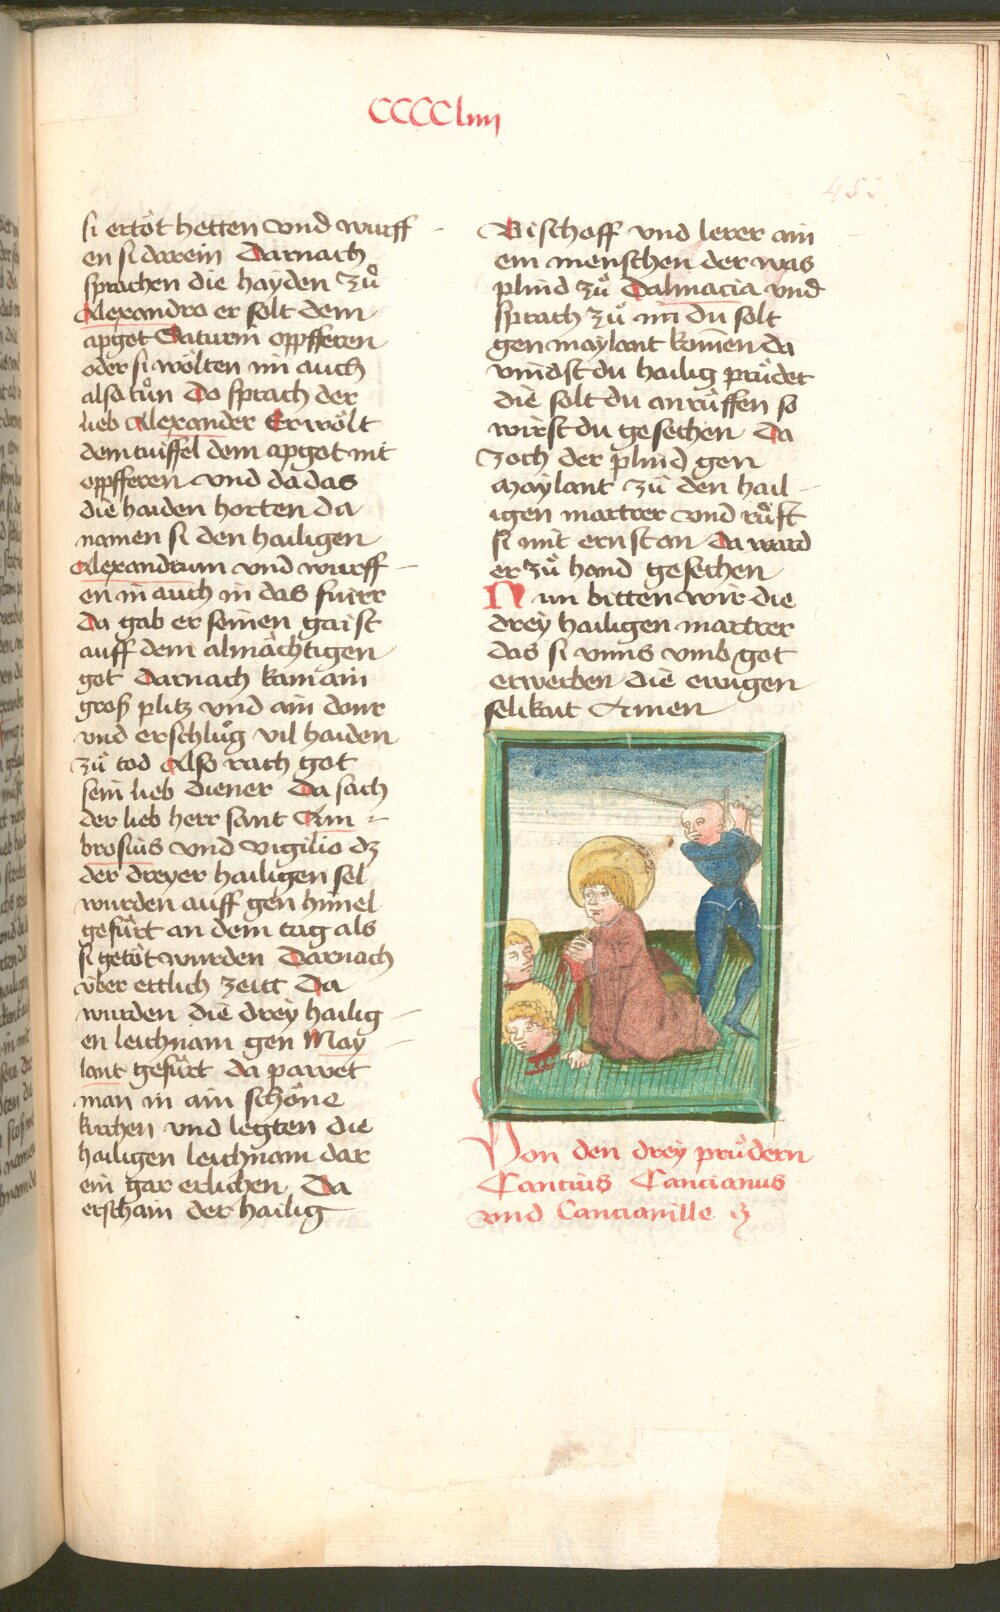 CCCCliiij
455
si ertöt hetten vnd wurff
en si darein Darnach
sprachen die hayden zů
Alexandro er solt dem
apgot Saturni opffferen
oder si wölten im auch
also tůn Do sprach der
lieb Alexander Er wölt
dem tuiffel dem apgot nit
opffferen vnd da das
die haiden horten da
namen si den hailigen
Alexandrum vnd wurff
en in auch in das fuirr
Da gab er seinen gaist
auff dem almächtigen
got Darnach kam ain
groß plitz vnd ain donr
vnd erschlůg vil haiden
zů tod Also rach got
sein lieb diener Da sach
der lieb herr sant Am
brosius vnd vigilio dz
der dreyer hailigen sel
wurden auff gen himel
gefürt an dem tag als
si getöt wurden Darnach
über ettlich zeitt Da
wurden die drey hailig
en leichnam gen May
lant gefürt da pawet
man in ain schöne
kirchen vnd legten die
hailigen leichnam dar
ein gar erlichen Da
erschain der hailig
Bischoff vnd lerer ain
em menschen der was
plind zů Dalmacia vnd
sprach zů im du solt
gen maylant komen da
vindst du hailig prüder
die solt du anrüffen so
wirst du gesechen Da
zoch der plind gen
Maylant zů den hail
igen martrer vnd růft
si mit ernst an Da ward
er zů hand gesechen
Nun bitten wir die
drey hailigen martrer
das si vnns vmb got
erwerben die ewigen
selikait Amen
Von den drey prüdern
Cantius Cancianus
vnd Cancianille